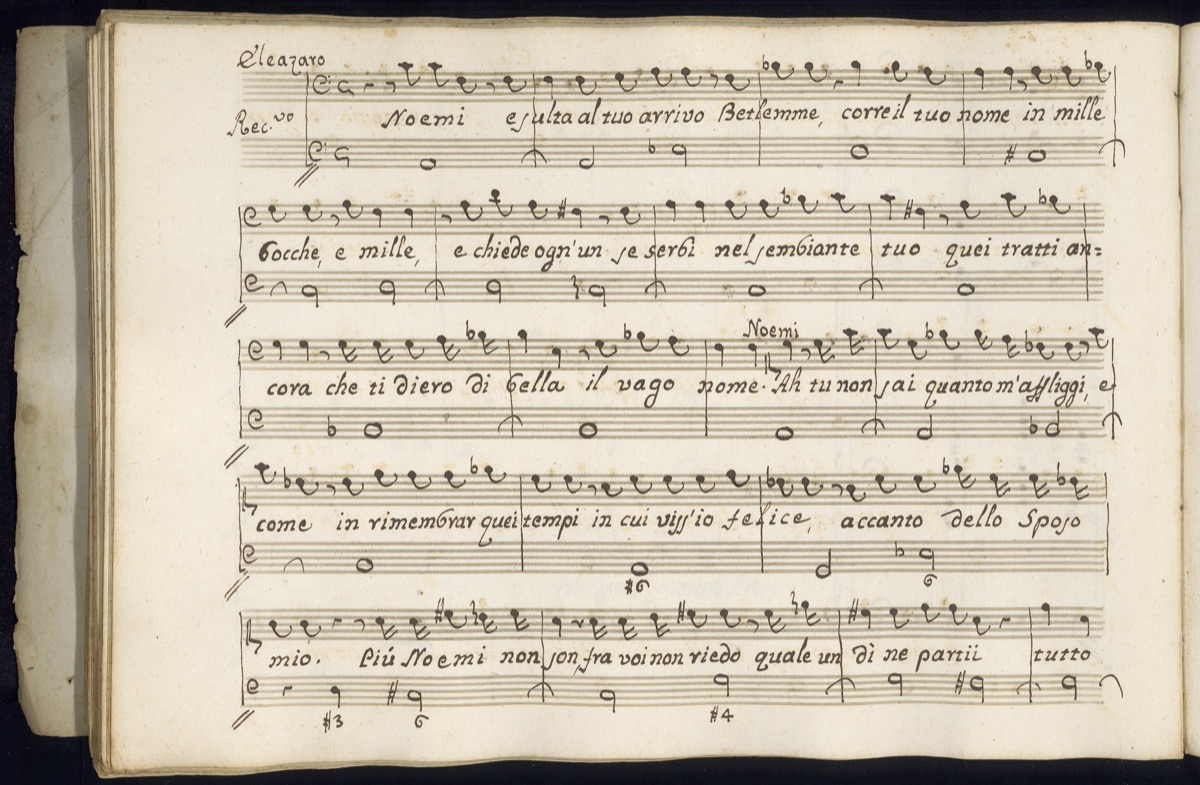 Eleazaro
Rec.vo
Noemi esulta al tuo arrivo Betlemme, corre il tuo nome in mille
bocche, e mille, e chiede ogn'un se serbi nel sembiante tuo quei tratti an=
Noemi
cora che ti diero di bella il vago nome. Ah tu non sai quanto m'affliggi, e
come in rimembrar quei tempi in cui viss'io felice, accanto dello Sposo
#6 6
mio. Più Noemi non son, fra voi non riedo quale un dì ne partii tutto
#3 6 #4